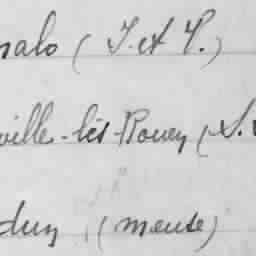 malo (I. et V.)
ville-lès-Rouen (S.
dun (meuse)